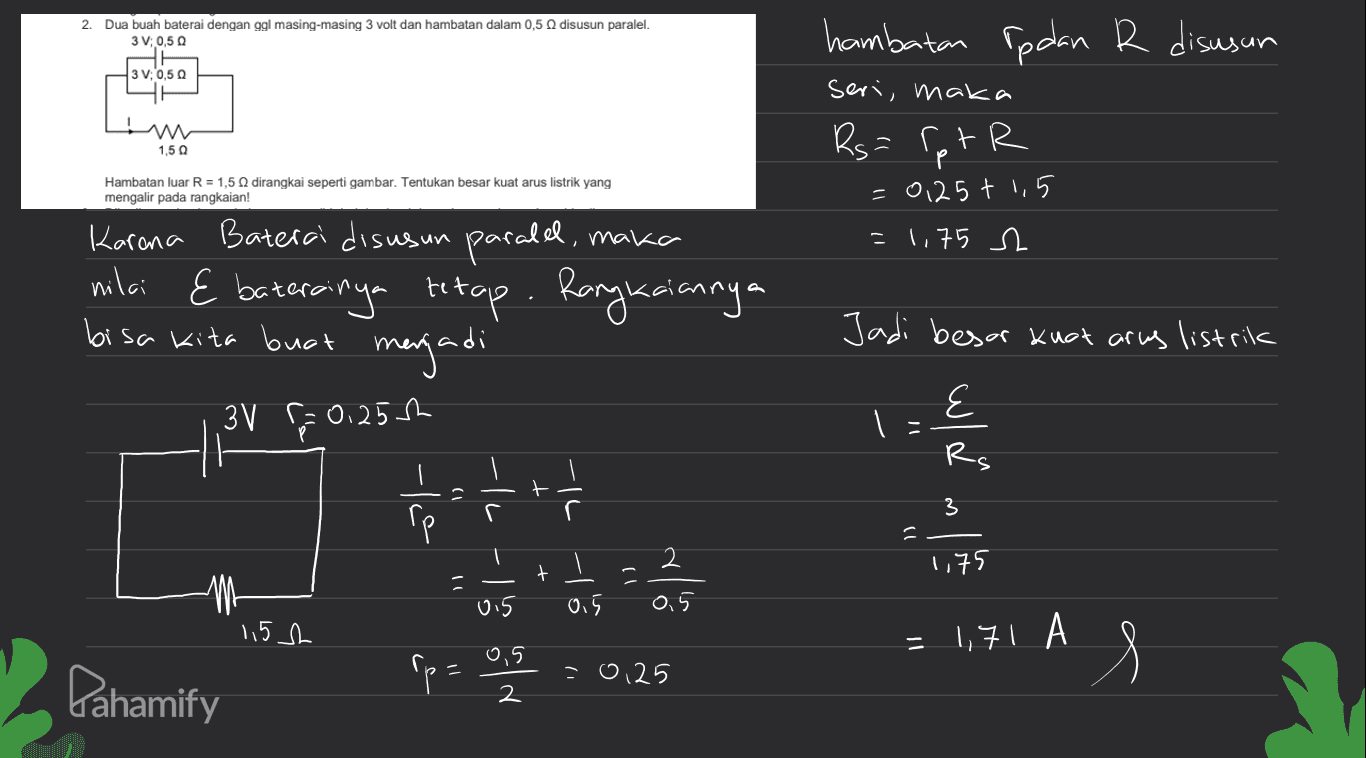 2. Dua buah baterai dengan ggl masing-masing 3 volt dan hambatan dalam 0,5 Ω disusun paralel.
3 V; 0,5 Ω
3 V; 0,5 Ω
I
1,5 Ω
Hambatan luar R = 1,5 Ω dirangkai seperti gambar. Tentukan besar kuat arus listrik yang
mengalir pada rangkaian!
Karena Baterai disusun paralel, maka
nilai ℰ baterainya tetap. Rangkaiannya
bisa kita buat menjadi
3V rp = 0,25 Ω
1,5 Ω
1/rp = 1/r + 1/r
= 1/0,5 + 1/0,5 = 2/0,5
rp = 0,5/2 = 0,25
hambatan rp dan R disusun
seri, maka
Rs = rp + R
= 0,25 + 1,5
= 1,75 Ω
Jadi besar kuat arus listrik
I = ℰ/Rs
= 3/1,75
= 1,71 A
Pahamify